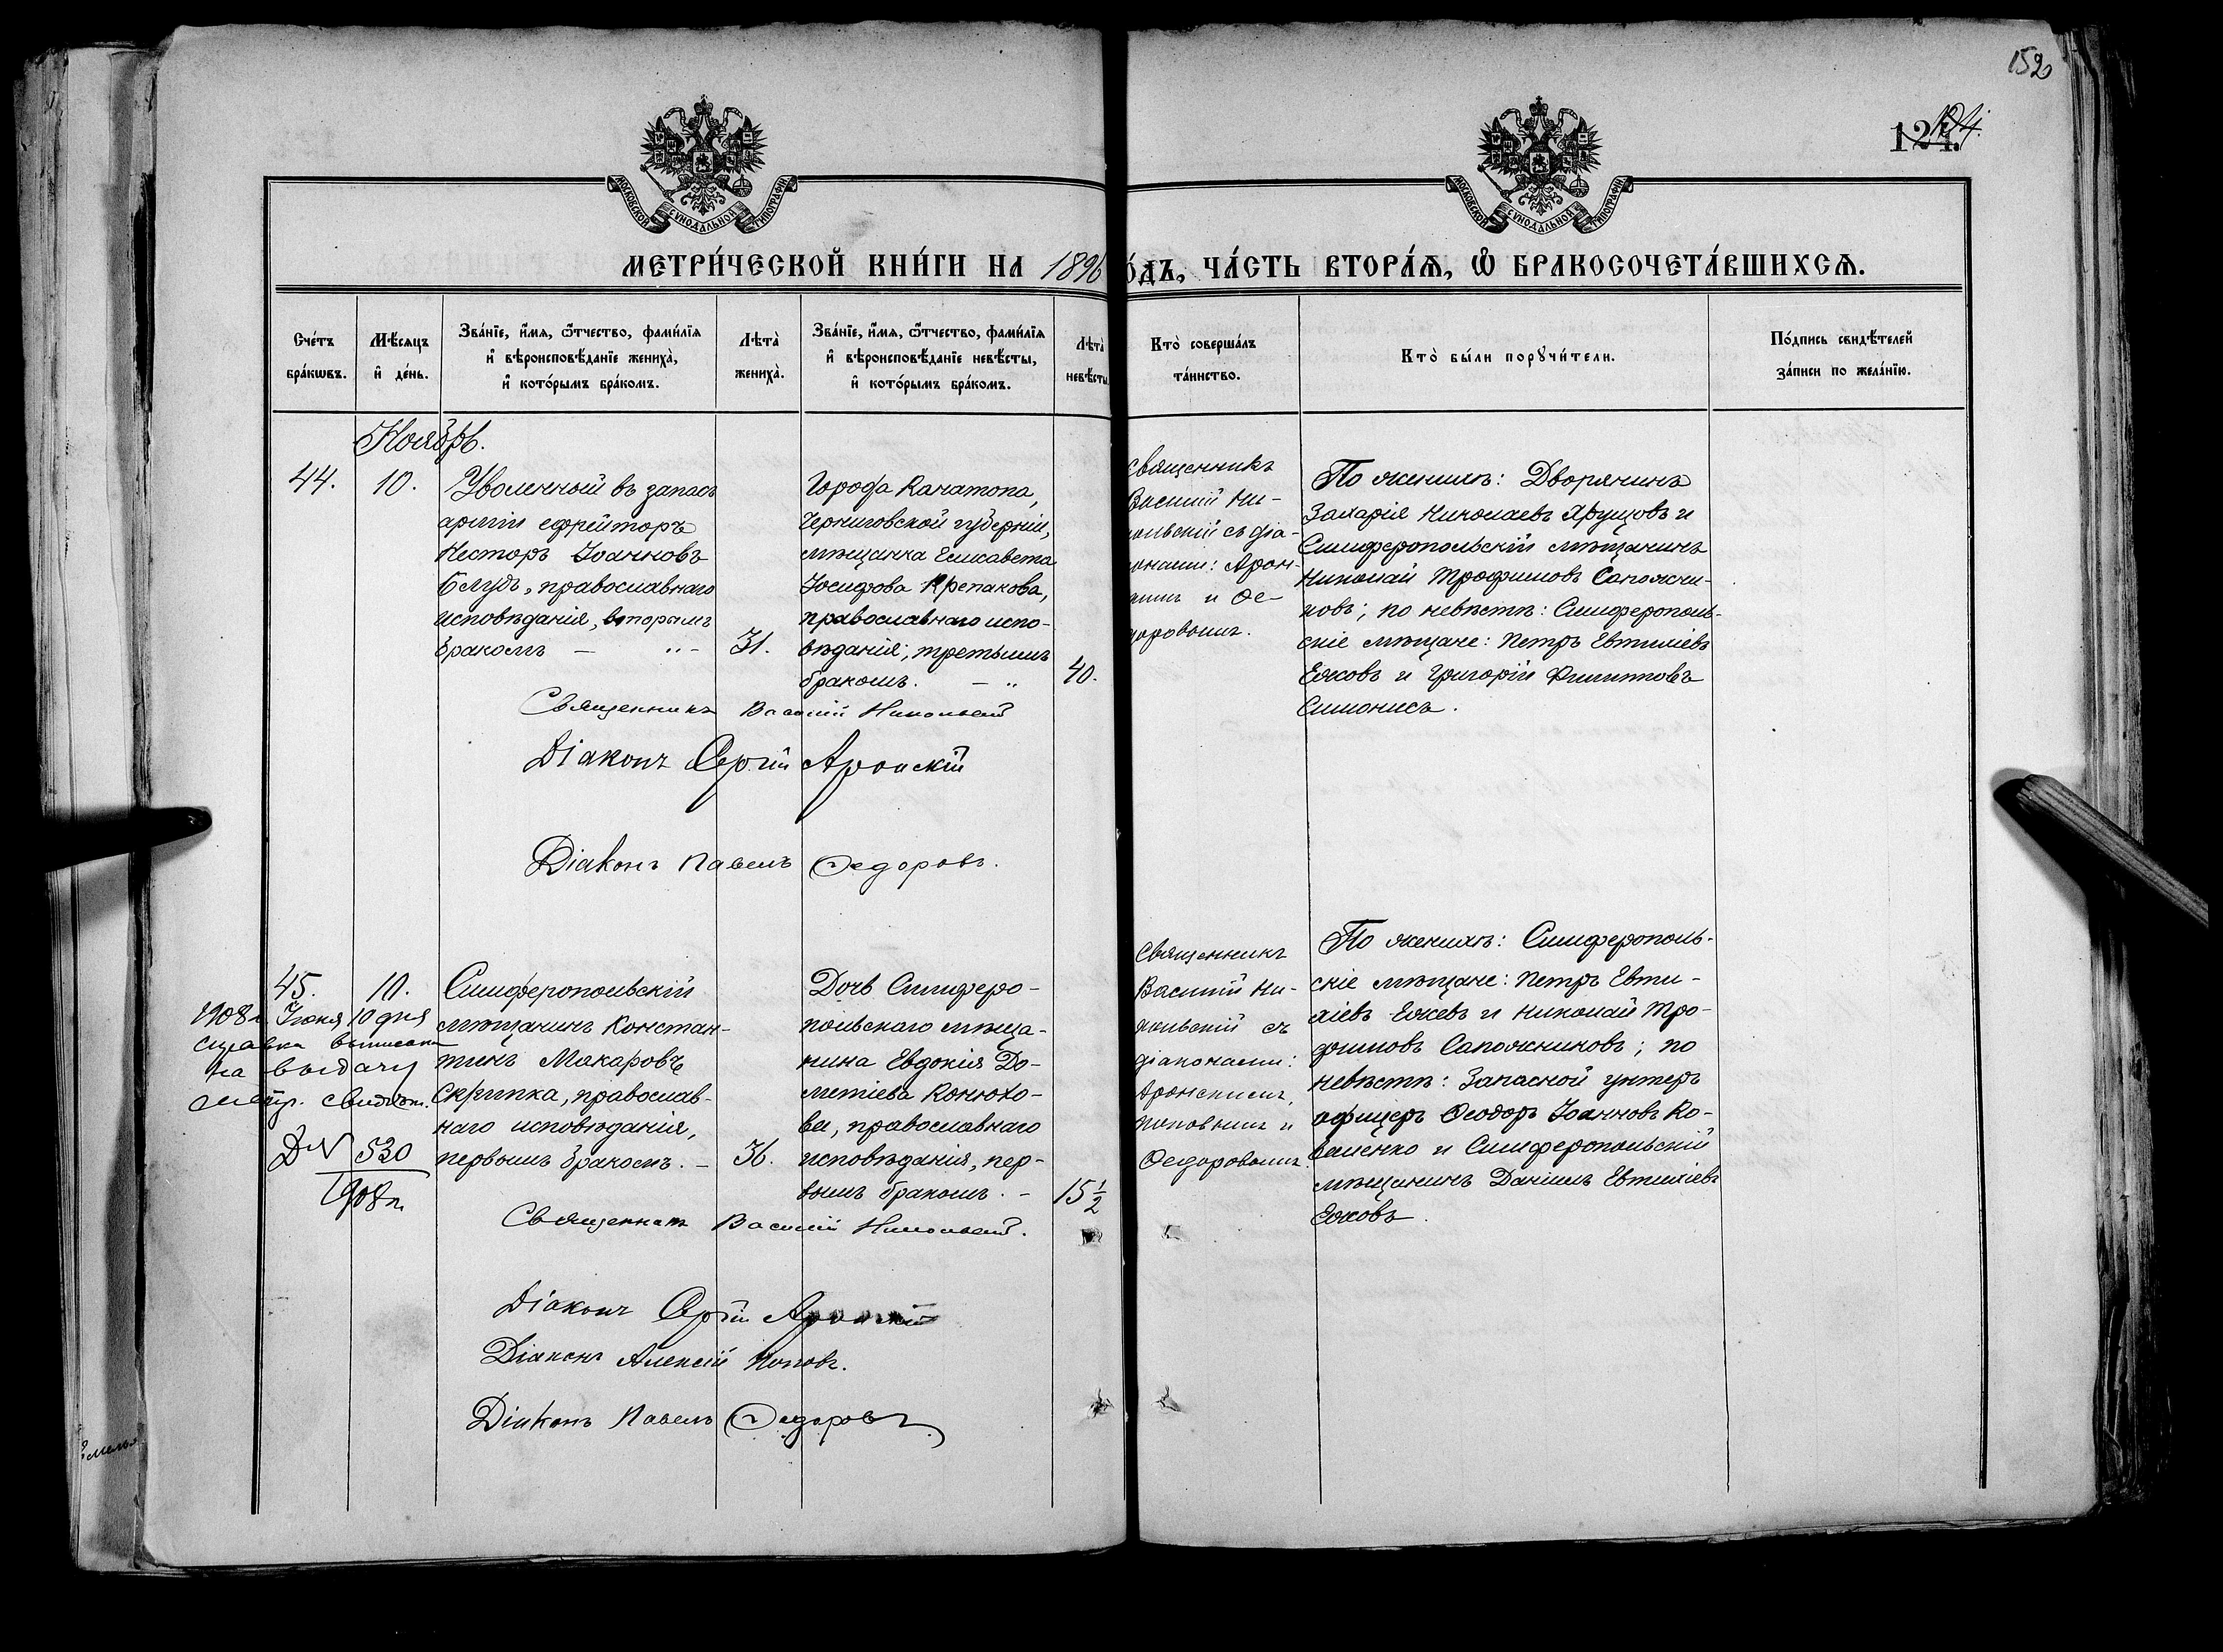 152
124.
МОСКОВСКОЙ СѴНОДАЛЬНОЙ ТИПОГРАФІИ
МОСКОВСКОЙ СѴНОДАЛЬНОЙ ТИПОГРАФІИ
МЕТРИ́ЧЕСКОЙ КНИ́ГИ НА 1896
О́ДЪ, ЧА́СТЬ ВТОРА́Ѧ, Ѡ҆ БРАКОСОЧЕТА́ВШИХСѦ.
Сче́тъ
бра́кѡвъ.
Мѣ́сѧцъ
и҆ де́нь.
Зва́нїе, и҆́мѧ, ѻ҆́тчество, фами́лїѧ
и҆ вѣроисповѣ́данїе жениха̀,
и҆ кото́рымъ бра́комъ.
Лѣта̀
жениха̀.
Зва́нїе, и҆́мѧ, ѻ҆́тчество, фами́лїѧ
и҆ вѣроисповѣ́данїе невѣ́сты,
и҆ кото́рымъ бра́комъ.
Лѣта̀
невѣ́сты
Кто̀ соверша́лъ
та́инство.
Кто̀ бы́ли порꙋчи́тели.
По́дпись свидѣ́телей
за́писи по жела́нїю.
Ноябрь.
44.
10.
Уволенный въ запасъ
арміи ефрейторъ
Несторъ Іоанновъ
Блудъ, православнаго
исповѣданія, вторымъ
бракомъ —
31.
Города Канатопа,
Черниговской губерніи,
мѣщанка Елисавета
Іосифова Крепакова,
православнаго испо-
вѣданія, третьимъ
бракомъ. —
40.
Священникъ
Василій Ни-
кольскій съ діа-
конами: Арон-
скимъ и Ѳе-
доровымъ.
По женихѣ: Дворянинъ
Захарія Николаевъ Хрущовъ и
Симферопольскій мѣщанинъ
Николай Трофимовъ Сапожни-
ковъ; по невѣстѣ: Симферополь-
скіе мѣщане: Петръ Евтихіевъ
Ежовъ и Григорій Филипповъ
Симонисъ.
Священникъ Василій Никольскій
Діаконъ Сергій Аронскій
Діаконъ Павелъ Ѳедоровъ.
45.
10.
1908 г. Іюня 10 дня
справка выписана
на выдачу
метр. свидѣт.
Д № 530
1908 г.
Симферопольскій
мѣщанинъ Констан-
тинъ Макаровъ
Скрипка, православ-
наго исповѣданія,
первымъ бракомъ. —
36.
Дочь Симферо-
польскаго мѣща-
нина Евдокія До-
метіева Конюхо-
ва, православнаго
исповѣданія, пер-
вымъ бракомъ. —
15 1/2
Священникъ
Василій Ни-
кольскій съ
діаконами:
Аронскимъ,
Поповымъ и
Ѳедоровымъ.
По женихѣ: Симферополь-
скіе мѣщане: Петръ Евти-
хіевъ Ежовъ и Николай Тро-
фимовъ Сапожниковъ; по
невѣстѣ: Запасной унтеръ
офицеръ Ѳеодоръ Іоанновъ Ко-
валенко и Симферопольскій
мѣщанинъ Даніилъ Евтихіевъ
Ежовъ.
Священникъ Василій Никольскій.
Діаконъ Сергій Аронскій
Діаконъ Алексій Поповъ.
Діаконъ Павелъ Ѳедоровъ.